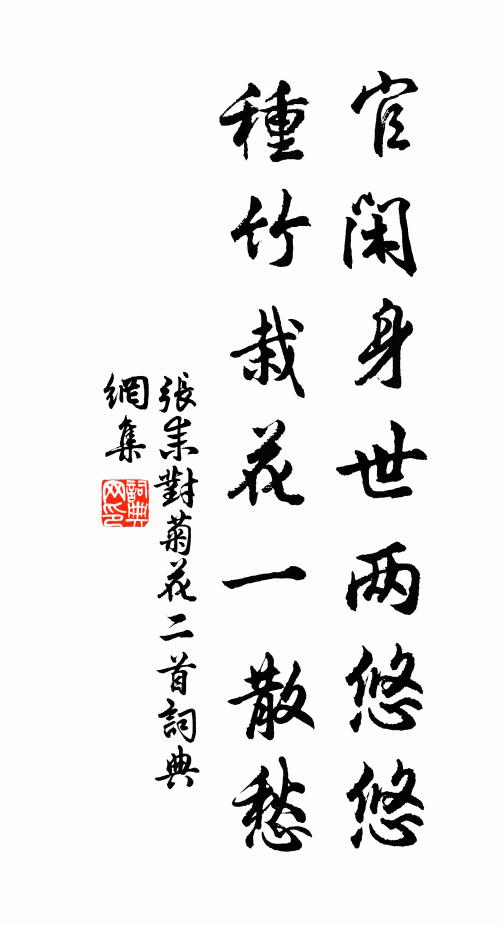 官閑身世两悠悠
種竹栽花一散愁
張耒對菊花二首詞典
網集
詞典網印